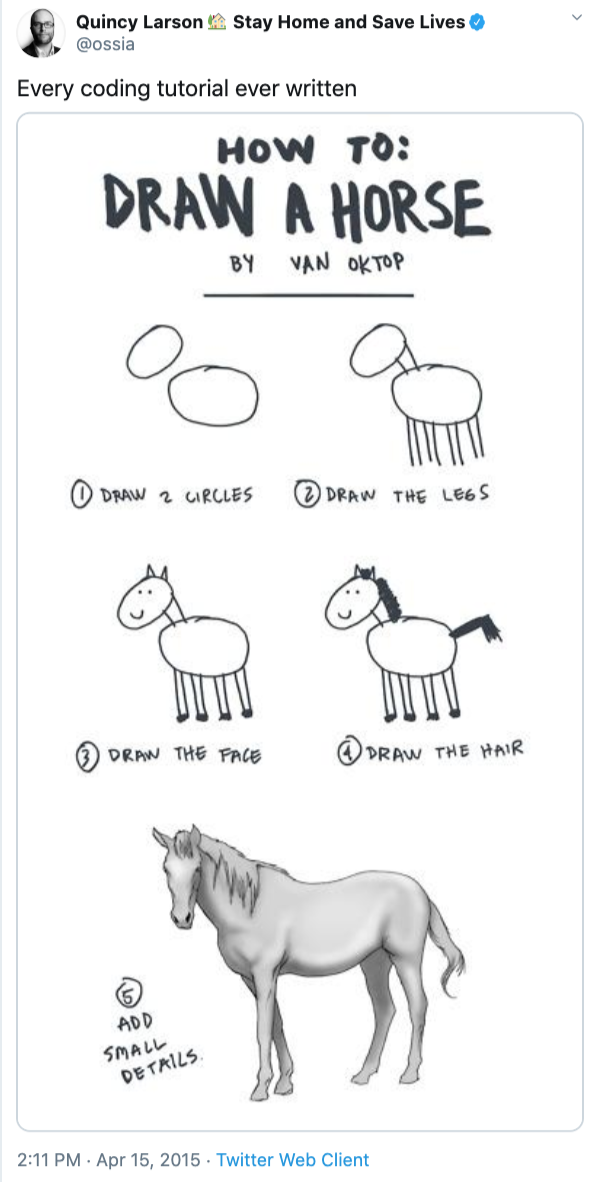 Quincy Larson 🏡 Stay Home and Save Lives
@ossia
Every coding tutorial ever written
HOW TO:
DRAW A HORSE
BY VAN OKTOP
① DRAW 2 CIRCLES
② DRAW THE LEGS
③ DRAW THE FACE
④ DRAW THE HAIR
⑤
ADD
SMALL
DETAILS.
2:11 PM · Apr 15, 2015 · Twitter Web Client